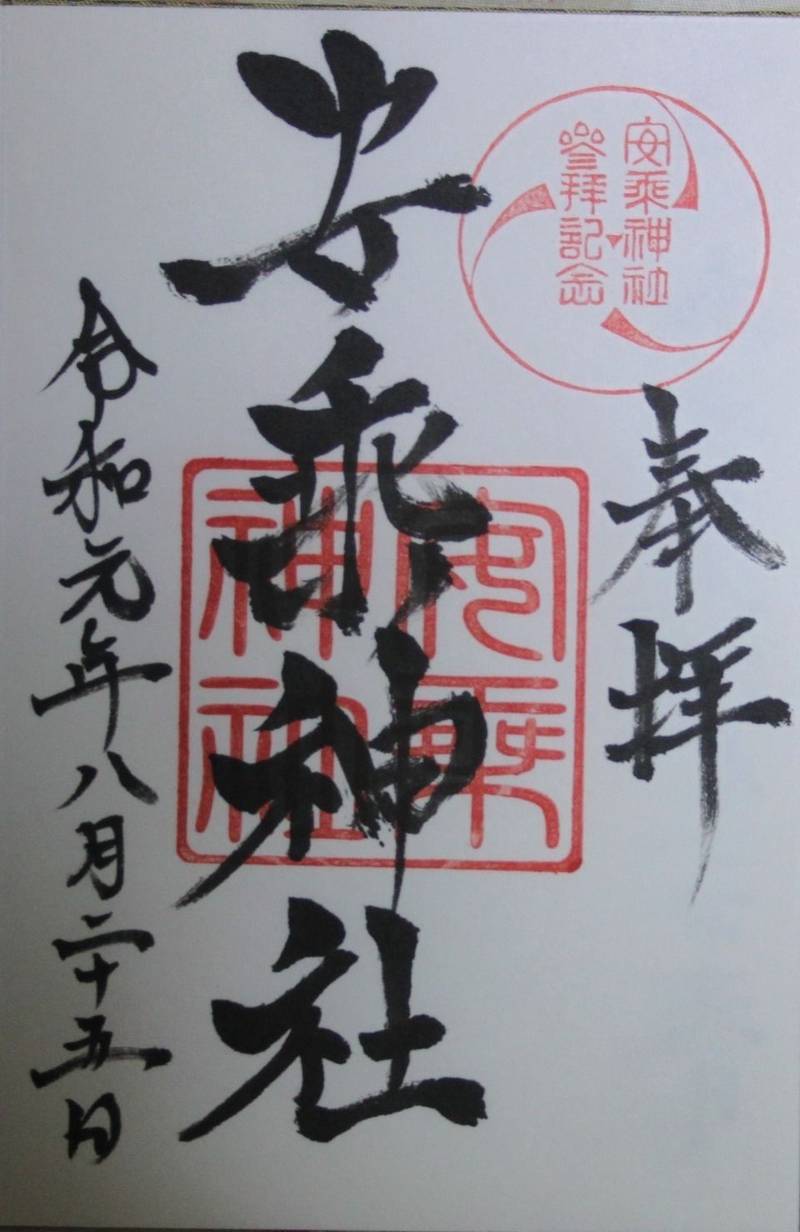 安乗神社
参拝記念
奉拝
安乗神社
安乗
神社
令和元年八月二十五日